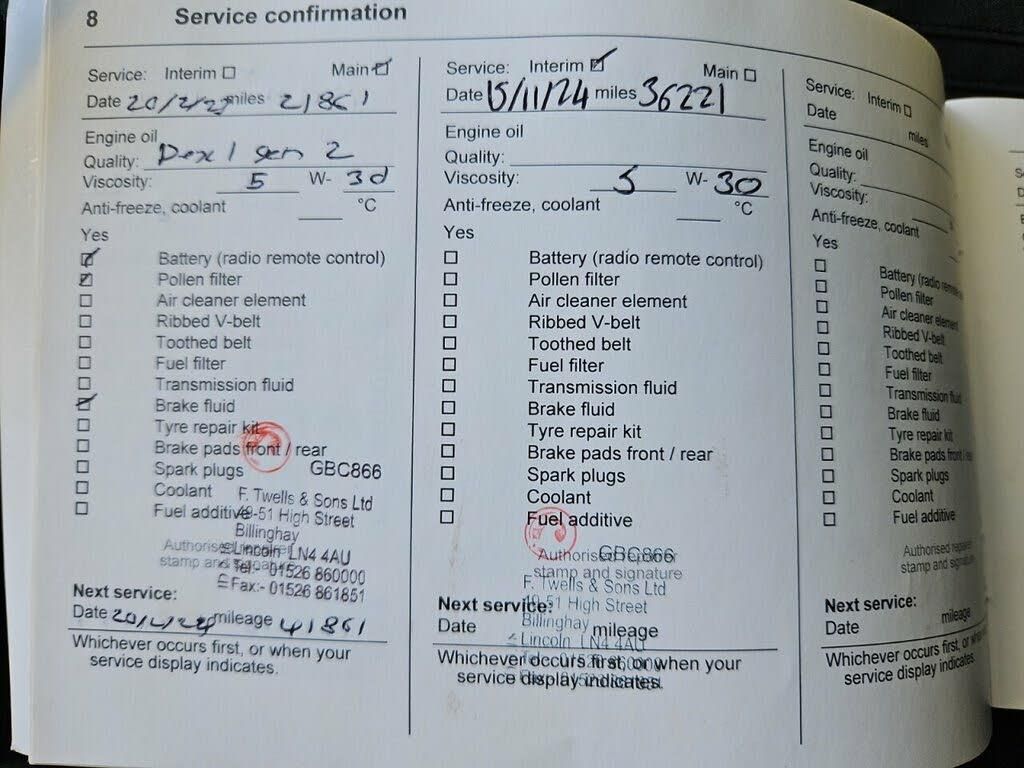 8 Service confirmation
Service: Interim ☐ Main ☑
Date 20/2/23 miles 21861
Engine oil
Quality: Dex 1 gen 2
Viscosity: 5 W- 30
Anti-freeze, coolant °C
Yes
☑ Battery (radio remote control)
☑ Pollen filter
☐ Air cleaner element
☐ Ribbed V-belt
☐ Toothed belt
☐ Fuel filter
☐ Transmission fluid
☑ Brake fluid
☐ Tyre repair kit
☐ Brake pads front / rear
☐ Spark plugs
☐ Coolant
☐ Fuel additive
GBC866
F. Twells & Sons Ltd
49-51 High Street
Billinghay
Lincoln LN4 4AU
Tel:- 01526 860000
Fax:- 01526 861851
Authorised repairer
stamp and signature
Next service:
Date mileage 41861
Whichever occurs first, or when your
service display indicates.
Service: Interim ☑ Main ☐
Date 15/11/24 miles 36221
Engine oil
Quality:
Viscosity: 5 W- 30
Anti-freeze, coolant °C
Yes
☐ Battery (radio remote control)
☐ Pollen filter
☐ Air cleaner element
☐ Ribbed V-belt
☐ Toothed belt
☐ Fuel filter
☐ Transmission fluid
☐ Brake fluid
☐ Tyre repair kit
☐ Brake pads front / rear
☐ Spark plugs
☐ Coolant
☐ Fuel additive
GBC866
Authorised repairer
stamp and signature
F. Twells & Sons Ltd
49-51 High Street
Billinghay
Lincoln LN4 4AU
Next service:
Date mileage
Whichever occurs first, or when your
service display indicates.
Service: Interim ☐
Date miles
Engine oil
Quality:
Viscosity:
Anti-freeze, coolant
Yes
☐ Battery (radio remote
☐ Pollen filter
☐ Air cleaner element
☐ Ribbed V-belt
☐ Toothed belt
☐ Fuel filter
☐ Transmission fluid
☐ Brake fluid
☐ Tyre repair kit
☐ Brake pads front /
☐ Spark plugs
☐ Coolant
☐ Fuel additive
Authorised repairer
stamp and signature
Next service:
Date mileage
Whichever occurs first, or when
service display indicates.